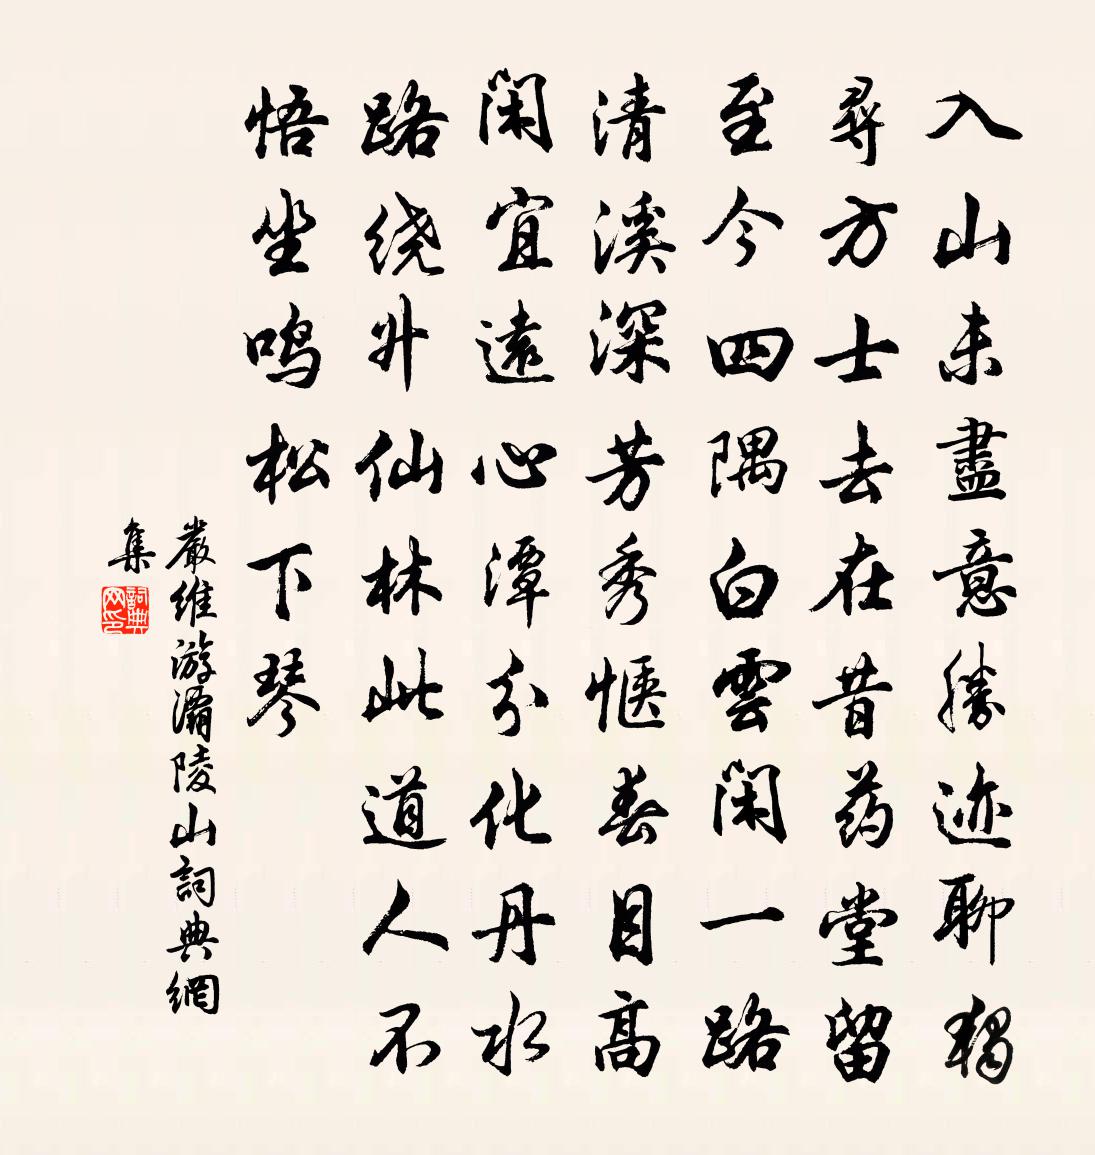 入山未盡意勝迹聊獨
尋方士去在昔药堂留
至今四隅白雲闲一路
清溪深芳秀惬春目高
闲宜遠心潭分化丹水
路绕升仙林此道人不
悟坐鸣松下琴
嚴維游灞陵山詞典網
集
詞典网印